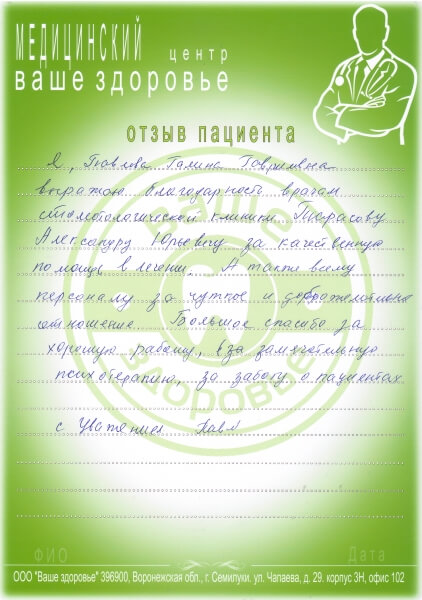 МЕДИЦИНСКИЙ центр
ваше здоровье
отзыв пациента
Я, Павлова Галина Гавриловна
выражаю благодарность врачам
стоматологической клиники
Александру Юрьевичу за качественную
помощь в лечении. А также всему
персоналу за чуткое и доброжелательное
отношение. Большое спасибо за
хорошую работу, за замечательную
психотерапию, за заботу о пациентах.
С уважением Павл
Ваше
Здоровье
ФИО Дата
ООО "Ваше здоровье" 396900, Воронежская обл., г. Семилуки. ул. Чапаева, д. 29. корпус 3Н, офис 102